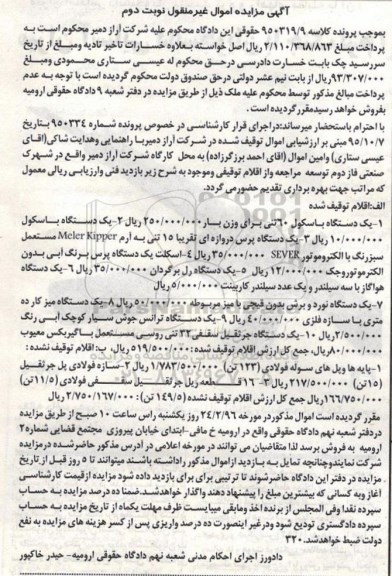 آگهی مزایده اموال غیرمنقول نوبت دوم
بموجب پرونده کلاسه ۹۵۰۳۱۹/۹ حقوقی این دادگاه محکوم علیه شرکت آراز دمیر محکوم است به
پرداخت مبلغ ۲/۱۱۰/۳۶۸/۸۶۳ ریال اصل خواسته بعلاوه خسارات تاخیر تادیه ومبلغ از تاریخ
سررسید چک بابت خسارت دادرسی درحق محکوم له عیسی ستاری محمودی ومبلغ
۹۳/۳۰۷/۰۰۰ریال از بابت نیم عشر دولتی درحق صندوق دولت محکوم گردیده است با توجه به عدم
پرداخت مبالغ مذکور توسط محکوم علیه ملک ذیل از طریق مزایده در دفتر شعبه ۹ دادگاه حقوقی ارومیه
بفروش خواهد رسیدمقرر گردیده است.
با احترام باستحضار میرساند:دراجرای قرار کارشناسی در خصوص پرونده شماره ۹۵۰۳۳۴ بتاریخ
۹۵/۱۰/۷ مبنی بر ارزشیابی اموال توقیف شده در شرکت آراز دمیربا راهنمایی وهدایت شاکی(اقای
عیسی ستاری) وامین اموال (اقای احمد برزگرزاده) به محل کارگاه شرکت آراز دمیر واقع در شهرک
صنعتی فاز دوم توسعه مراجعه واز اقلام توقیفی وموجود به شرح زیر بازدید فنی وارزیابی ریالی معمول
که مراتب جهت بهره برداری تقدیم حضورمی گردد.
الف:اقلام توقیف شده
۱-یک دستگاه باسکول ۶۰تنی برای وزن بار ۲۵۰/۰۰۰/۰۰۰ ریال ۲-یک دستگاه باسکول
۱۰/۰۰۰/۰۰۰ ریال ۳-یک دستگاه پرس دروازه ای تقریبا ۱۵ تنی به آرم Meler Kipper مستعمل
سبزرنگ با الکتروموتور SEVER ۳۵/۰۰۰/۰۰۰ ریال ۴-اسکلت یک دستگاه پرس برنگ آبی بدون
الکتروموتوروجک ۱۲/۰۰۰/۰۰۰ ریال ۵-یک دستگاه رل برگردان ۳۵/۰۰۰/۰۰۰ ریال ۶-یک دستگاه
هواگاز با سه سیلندر و یک عدد سیلندر کاربینت ۵/۰۰۰/۰۰۰ ریال
۷-یک دستگاه نورد و برش بدون قیچی با میز مربوطه ۵۰/۰۰۰/۰۰۰ ریال ۸-یک دستگاه میز کار ده
متری با سازه فلزی ۴۰/۰۰۰/۰۰۰ ریال ۹-یک دستگاه ترانس جوش سیار کوچک آبی رنگ
۲/۵۰۰/۰۰۰ ریال ۱۰-یک دستگاه جرثقیل سقفی ۳۲ تنی روسی مستعمل باگیربکس معیوب
۸۰/۰۰۰/۰۰۰ ریال، جمع کل ارزش اقلام توقیف شده: ۵۱۹/۵۰۰/۰۰۰ ریال. ب: اقلام توقیف نشده :
۱-پایه ها ویل های سوله فولادی (۱۲۳ تن) ۱/۷۸۳/۵۰۰/۰۰۰ ریال ۲-سازه فولادی پل جرثقیل
(۱۵تن) ۲۱۷/۵۰۰/۰۰۰ ریال ۳-۱۶ قطعه ریل جرثقیل سقفی فولادی (۱۱/۵تن)
۱۶۶/۷۵۰/۰۰۰ریال جمع کل ارزش اقلام توقیف نشده (۱۴۹/۵ تن): ۲/۷۵۰/۱۶۷/۰۰۰ ریال.
مقرر گردیده است اموال مذکوردر مورخه ۲۴/۲/۹۶ روز یکشنبه راس ساعت ۱۰ صبح از طریق مزایده
دردفتر شعبه نهم دادگاه حقوقی واقع در ارومیه خ مافی-ابتدای خیابان پیروزی مجتمع قضایی شماره۲
ارومیه به فروش برسد لذا متقاضیان می توانند در مورخه اعلامی در آدرس مذکور حاضرشده درمزایده
شرکت نمایندوچنانچه تمایل به بازدید از اموال مذکور راداشته باشند میتوانند تا ۵ روز قبل از تاریخ
مزایده در دفتر این دادگاه حاضرشوند تا ترتیبی برای برای بازدید داده شود مزایده ازقیمت کارشناسی
آغاز وبه کسانی که بیشترین مبلغ را پیشنهاد دهند واگذار خواهدشد.ضمنا ده درصد مزایده به حساب
سپرده نقدا وفی المجلس از برنده اخذ ومابقی میبایست ظرف مهلت یکماه از تاریخ مزایده به حساب
سپرده دادگستری تودیع شود ودرغیر اینصورت ده درصد واریزی پس از کسر هزینه های مزایده به نفع
دولت ضبط خواهدشد.۳۲۰
دادورز اجرای احکام مدنی شعبه نهم دادگاه حقوقی ارومیه- حیدر خاکپور